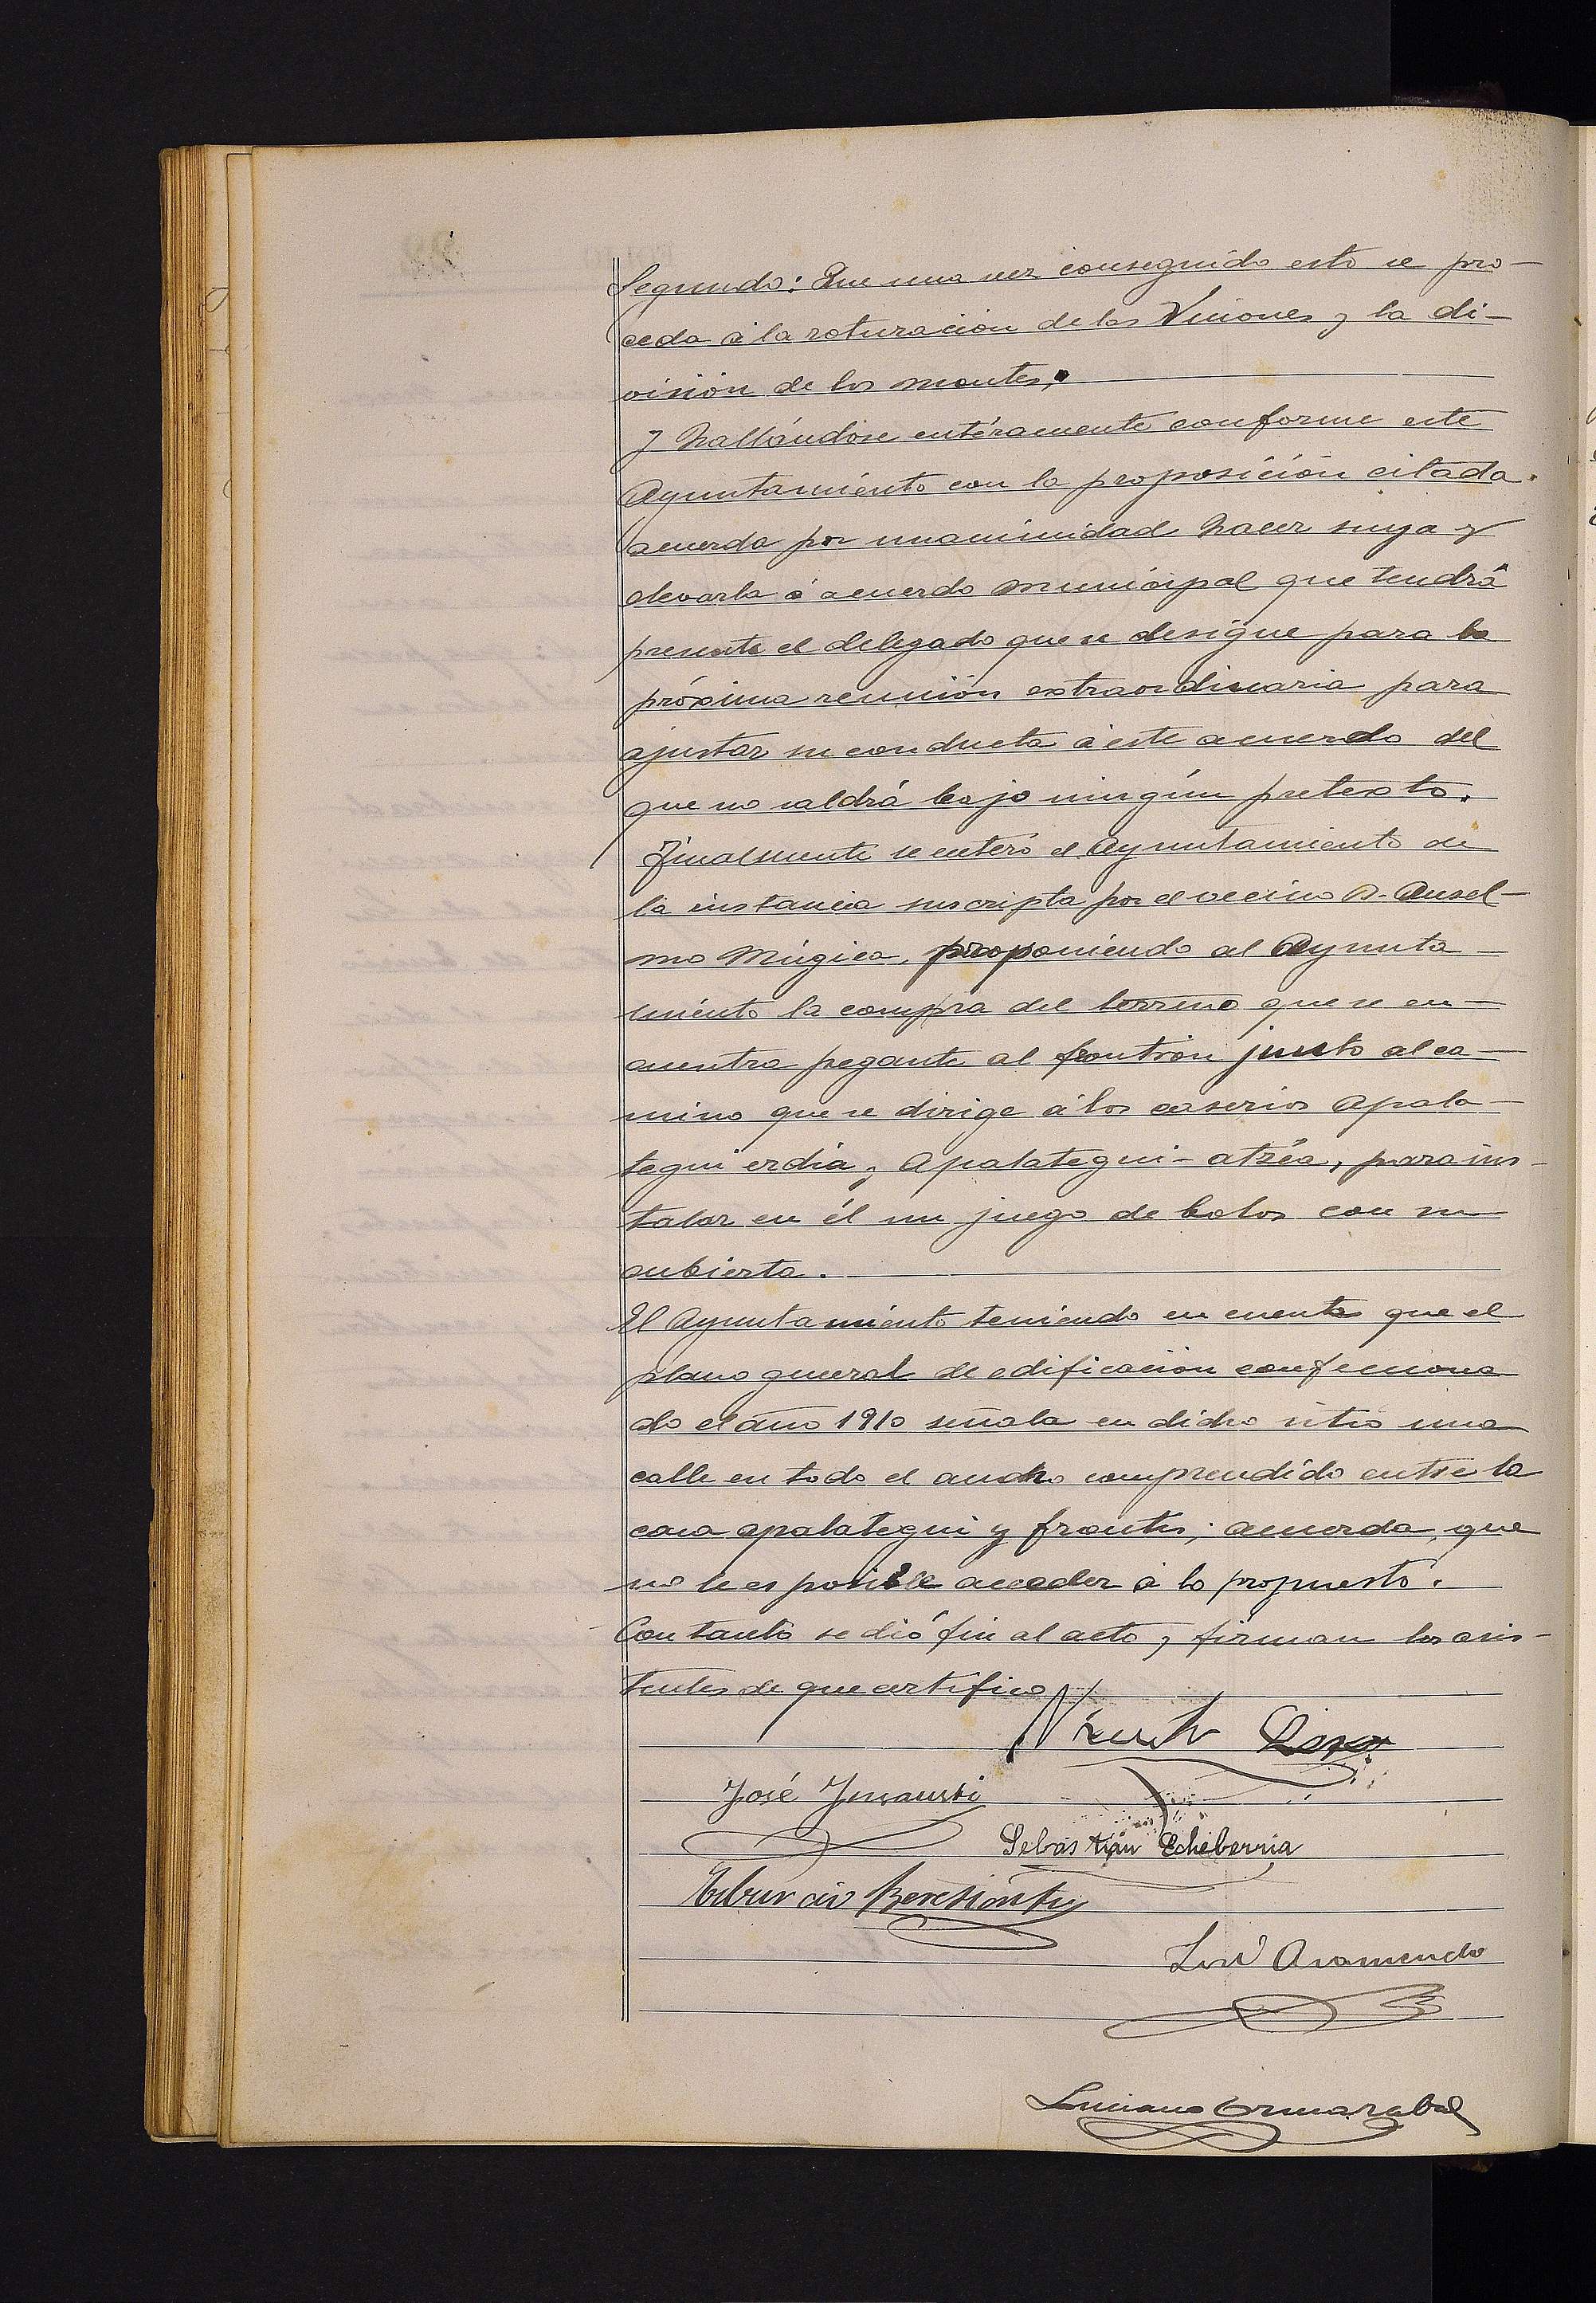 Segundo: Que una vez conseguido esto se pro-
ceda á la roturación de las Uniones y la di-
visión de los montes.
Y hallándose entéramente conforme este
Ayuntamiento con la proposición citada.
acuerda por unanimidad hacer suya y
elevarla á acuerdo municipal que tendrá
presente el delegado que se designe para la
próxima reunión extraordinaria para
ajustar su conducta á este acuerdo del
que no saldrá bajo ningún pretexto.
Finalmente se enteró el Ayuntamiento de
la instancia suscripta por el vecino D. Ansel-
mo Múgica, proponiendo al Ayunta-
miento la compra del terreno que se en-
cuentra pegante al frontón junto al ca-
mino que se dirige á los caserios Apala-
tegui erdia y Apalategui-atzéa, para ins-
talar en él un juego de bolos con su
cubierta.
El Ayuntamiento teniendo en cuenta que el
plano general de edificación confecciona
do el año 1910 señala en dicho sitio una
calle en todo el ancho comprendido entre la
casa apalategui y frontis; acuerda, que
no le es posible acceder á lo propuesto.
Con tanto se dió fin al acto y firman los asis-
tentes de que certifico
Vicente
José Insausti
Sebastián Echeberria
Tiburcio
José Aramendo
Luciano Ormazabal